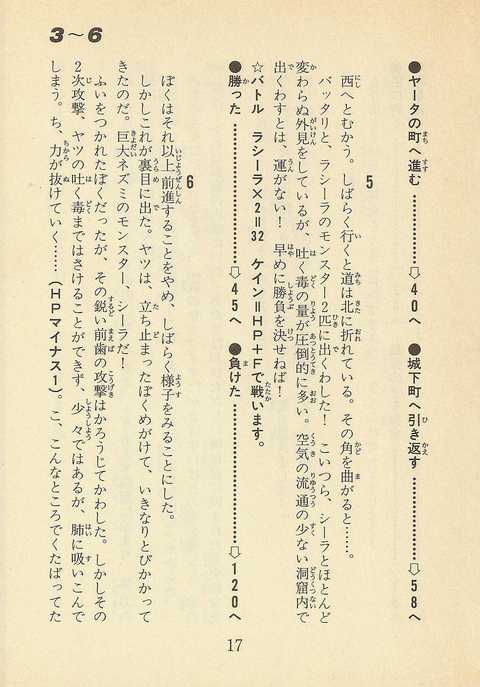 3〜6
●ヤータの町へ進む……………⇨40へ ●城下町へ引き返す……………⇨58へ
5
西へとむかう。しばらく行くと道は北に折れている。その角を曲がると……。
バッタリと、ラシーラのモンスター2匹に出くわした! こいつら、シーラとほとんど
変わらぬ外見をしているが、吐く毒の量が圧倒的に多い。空気の流通の少ない洞窟内で
出くわすとは、運がない! 早めに勝負を決せねば!
☆バトル ラシーラ×2=32 ケイン=HP+Fで戦います。
●勝った……………⇨45へ ●負けた……………⇨120へ
6
ぼくはそれ以上前進することをやめ、しばらく様子をみることにした。
しかしこれが裏目に出た。ヤツは、立ち止まったぼくめがけて、いきなりとびかかって
きたのだ。巨大ネズミのモンスター、シーラだ!
ふいをつかれたぼくだったが、その鋭い前歯の攻撃はかろうじてかわした。しかしその
2次攻撃、ヤツの吐く毒まではさけることができず、少々ではあるが、肺に吸いこんで
しまう。ち、力が抜けていく……(HPマイナス1)。こ、こんなところでくたばってた
17